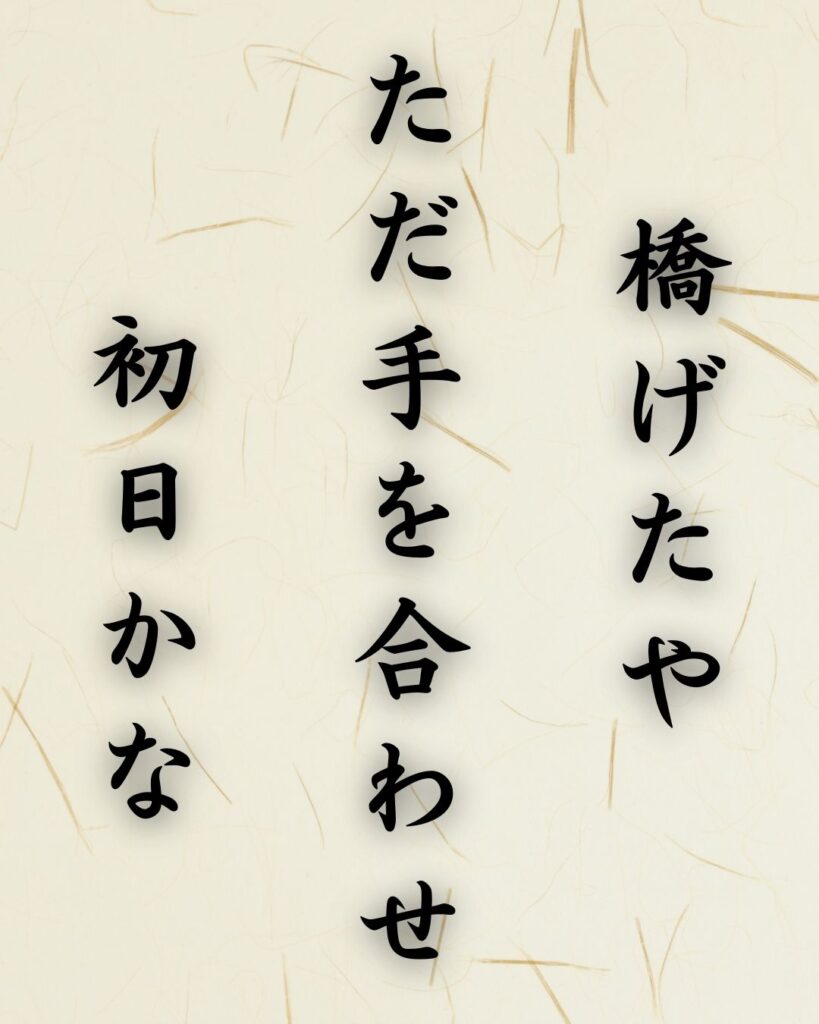 橋げたや
ただ手を合わせ
初日かな